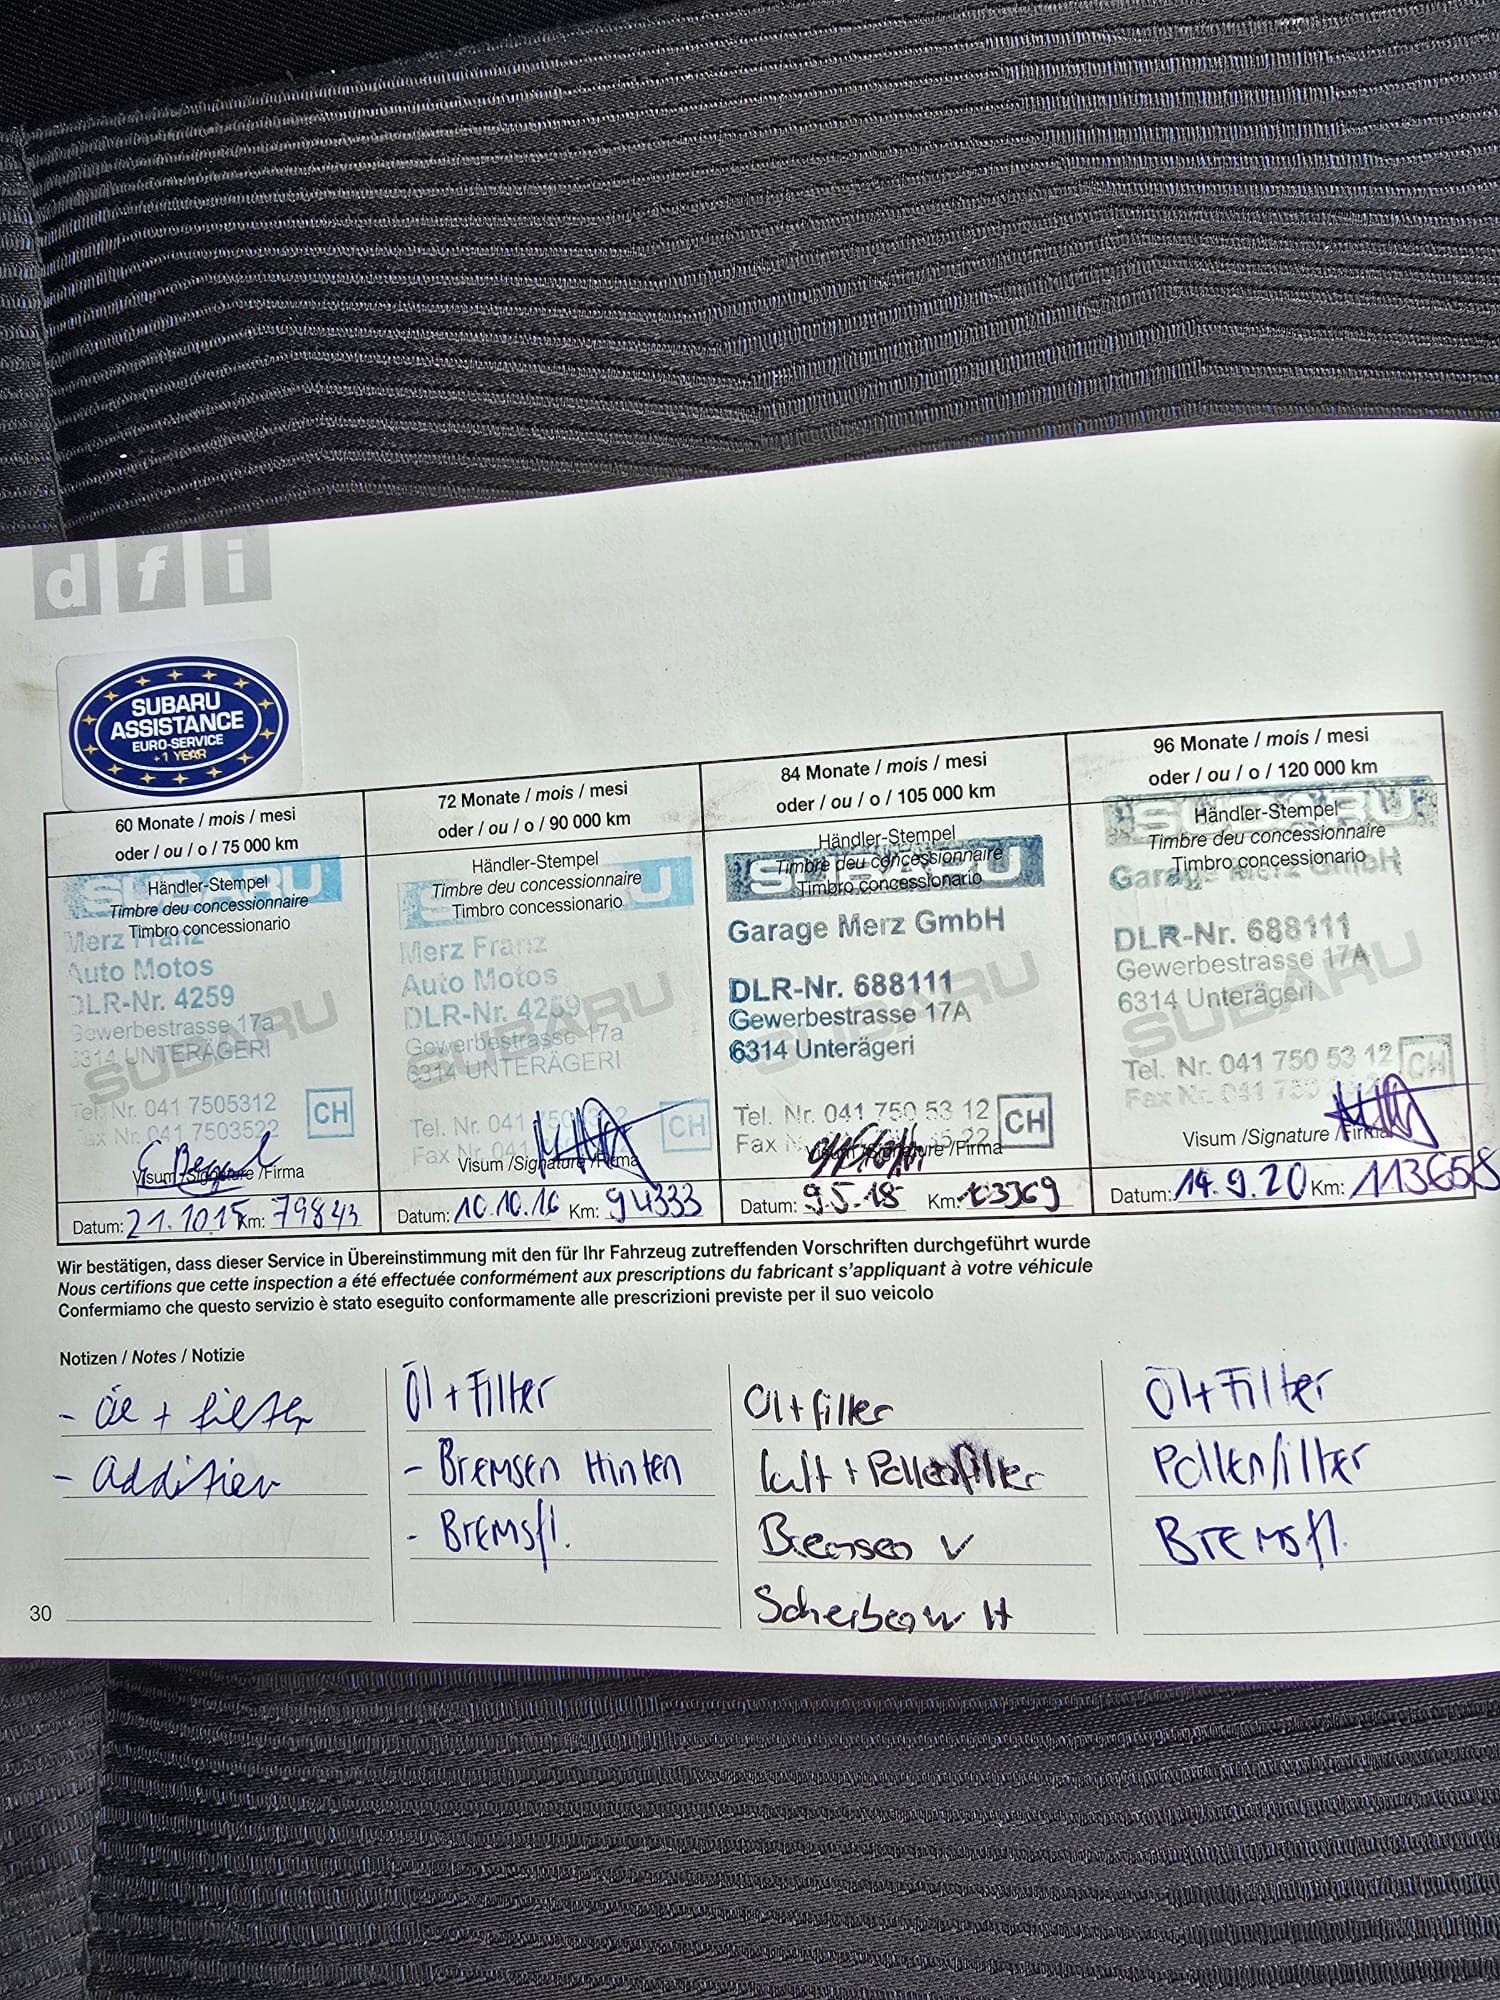 d f i
SUBARU
ASSISTANCE
EURO-SERVICE
+1 YEAR
60 Monate / mois / mesi
oder / ou / o / 75 000 km
Händler-Stempel
Timbre deu concessionnaire
Timbro concessionario
SUBARU
Merz Franz
Auto Motos
DLR-Nr. 4259
Gewerbestrasse 17a
6314 UNTERÄGERI
SUBARU
Tel. Nr. 041 7505312
Fax Nr. 041 7503522
CH
Visum /Signature /Firma
Datum: 21.10.15 Km: 79843
72 Monate / mois / mesi
oder / ou / o / 90 000 km
Händler-Stempel
Timbre deu concessionnaire
Timbro concessionario
Merz Franz
Auto Motos
DLR-Nr. 4259
Gewerbestrasse 17a
6314 UNTERÄGERI
SUBARU
Tel. Nr. 041
Fax Nr. 041
CH
Visum /Signature /Firma
Datum: 10.10.16 Km: 94333
84 Monate / mois / mesi
oder / ou / o / 105 000 km
Händler-Stempel
Timbre deu concessionnaire
Timbro concessionario
SUBARU
Garage Merz GmbH
DLR-Nr. 688111
Gewerbestrasse 17A
6314 Unterägeri
SUBARU
Tel. Nr. 041 750 53 12
Fax
CH
Visum /Signature /Firma
Datum: 9.5.18 Km:
96 Monate / mois / mesi
oder / ou / o / 120 000 km
Händler-Stempel
Timbre deu concessionnaire
Timbro concessionario
SUBARU
Garage Merz GmbH
DLR-Nr. 688111
Gewerbestrasse 17A
6314 Unterägeri
SUBARU
Tel. Nr. 041 750 53 12
Fax Nr. 041 750
CH
Visum /Signature /Firma
Datum: 14.9.20 Km: 113658
Wir bestätigen, dass dieser Service in Übereinstimmung mit den für Ihr Fahrzeug zutreffenden Vorschriften durchgeführt wurde
Nous certifions que cette inspection a été effectuée conformément aux prescriptions du fabricant s'appliquant à votre véhicule
Confermiamo che questo servizio è stato eseguito conformamente alle prescrizioni previste per il suo veicolo
Notizen / Notes / Notizie
- Öl + Filter
- Additiev
Öl + Filter
- Bremsen Hinten
- Bremsfl.
Öl + filter
Luft + Pollenfilter
Bremsen V
Scheibenw H
Öl + Filter
Pollenfilter
Bremsfl.
30